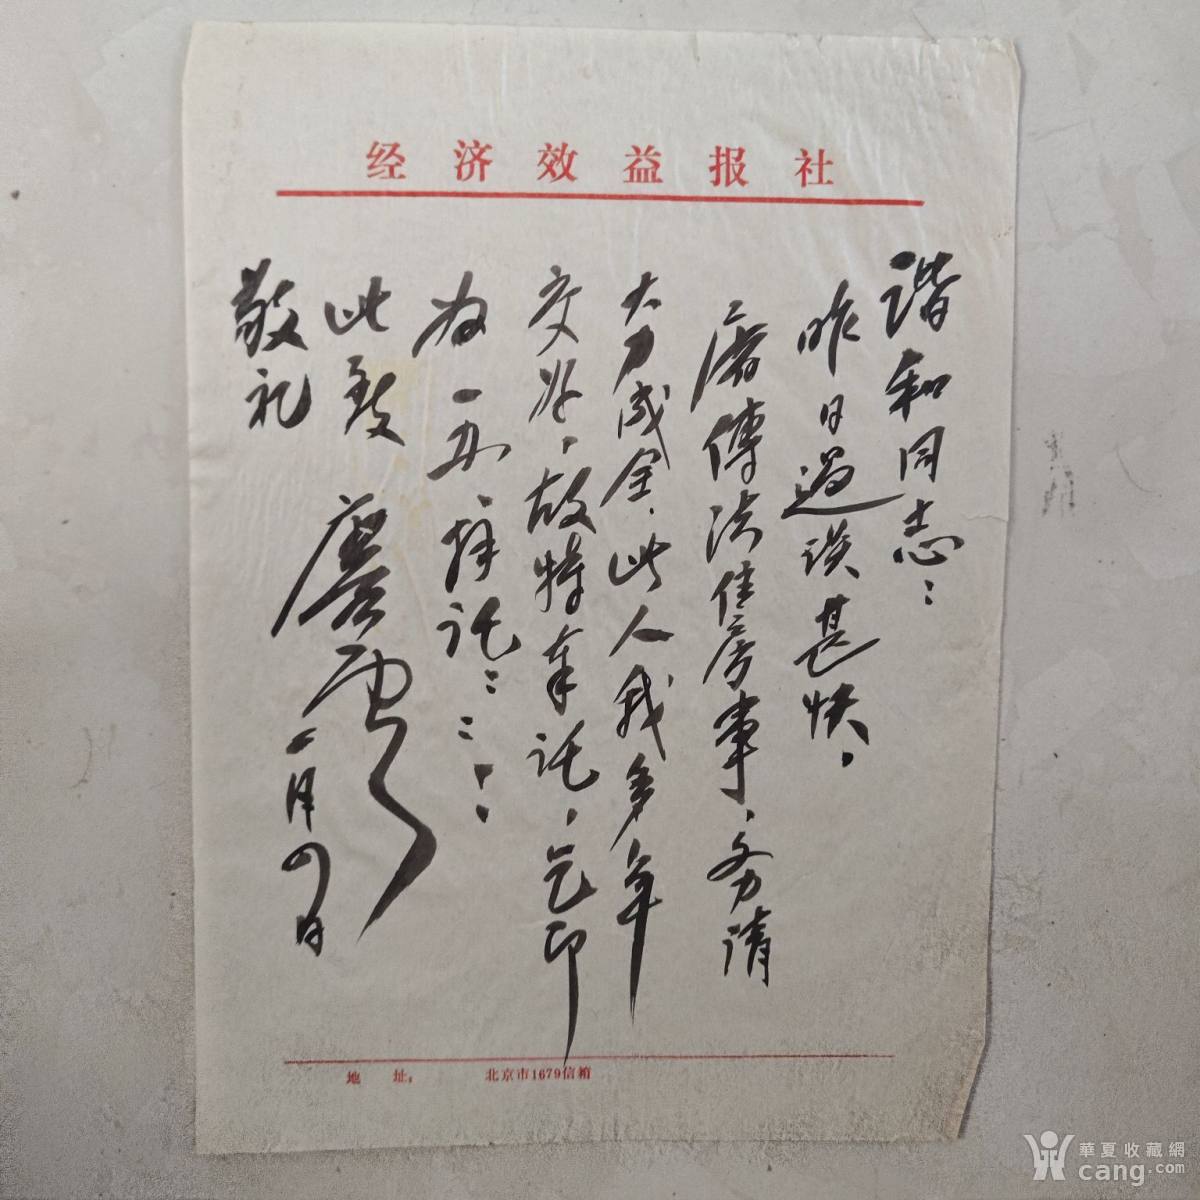 经济效益报社
谐和同志：
昨日过谈甚快。
唐傅法住房事，务请
大力成全，此人我多年
交好，故特奉托，乞即
为一办，拜托：：：：
此致
敬礼
一月四日
地 址： 北京市1679信箱
華夏收藏網
cang.com